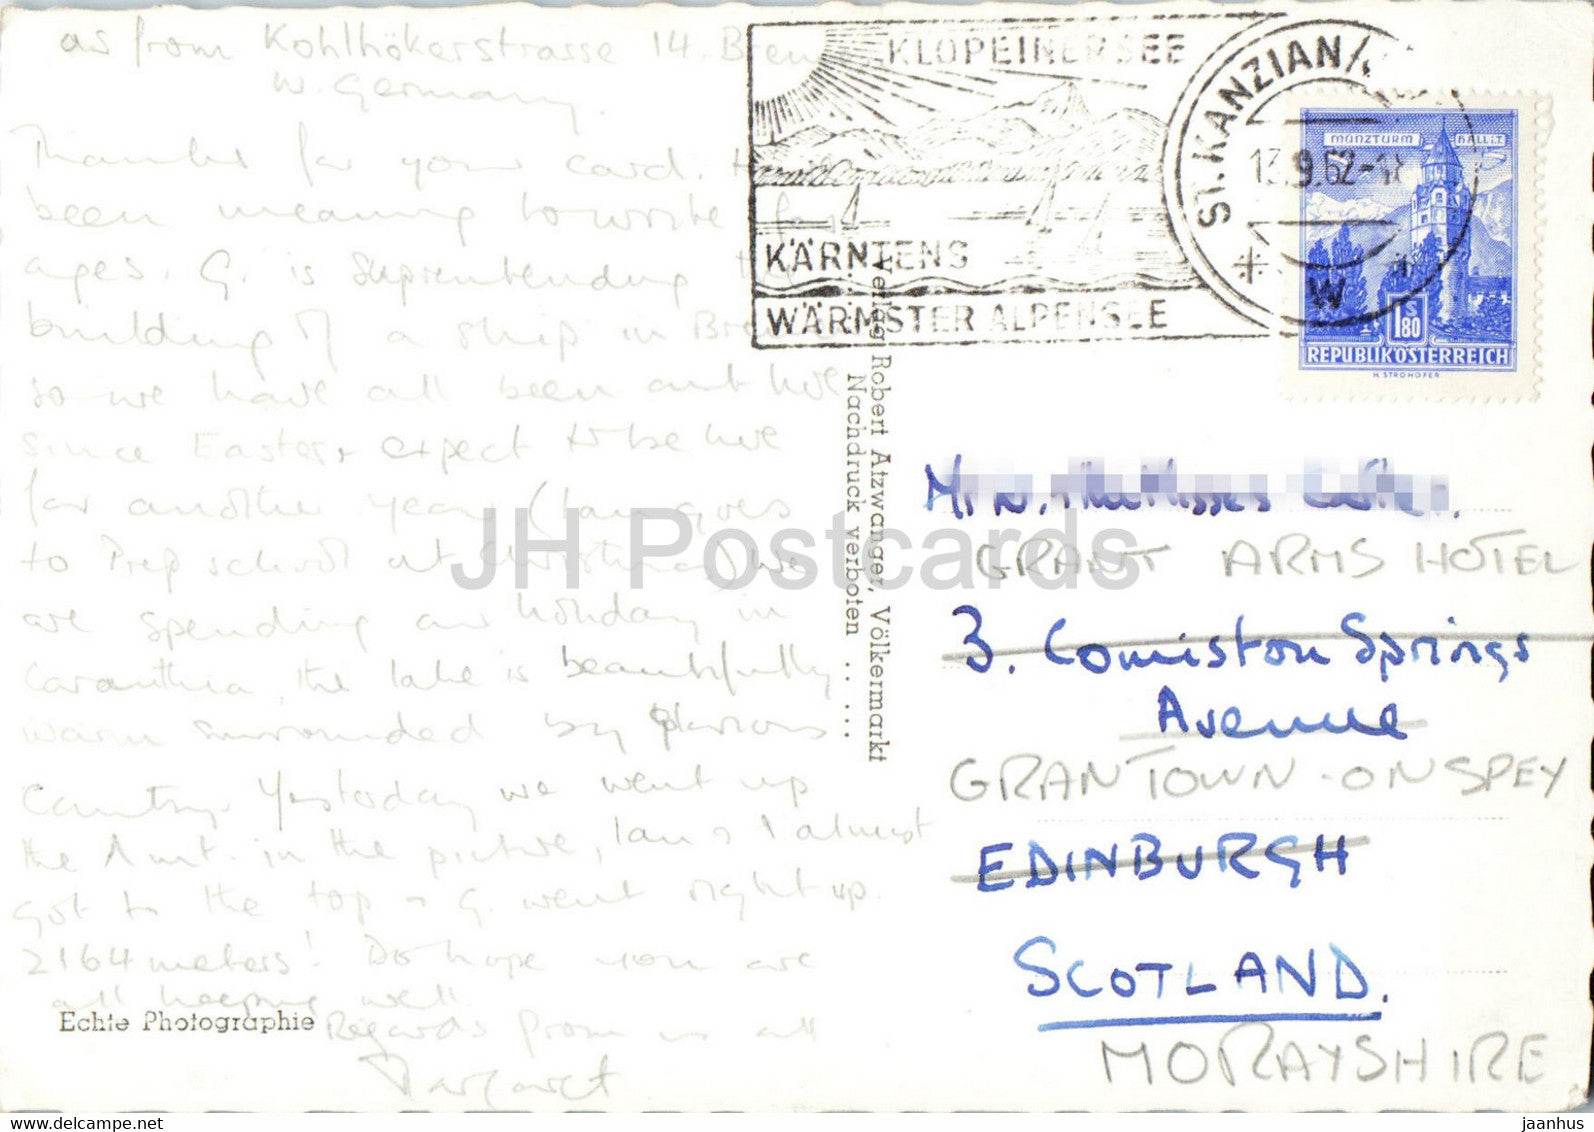 as from Kohlhökerstrasse 14. Brem
W. Germany.
Thanks for your card. H
been meaning to write for
ages. G. is Suprentending the
building of a ship in Bre
so we have all been out here
since Easter & expect to be here
for another year. (Ian goes
to Prep school at Christmas) We
are spending our holiday in
Caranthia, the lake is beautifully
warm surrounded by glorious
Country. Yesterday we went up
the Amt. in the picture, Ian & I almost
got to the top & G. went right up.
2164 meters! Do hope you are
all keeping well
Regards from us all
Margaret
Echte Photographie
Verlag Robert Atzwanger, Völkermarkt
Nachdruck verboten .. ... ...
KLOPEINERSEE
KÄRNTENS
WÄRMSTER ALPENSEE
ST. KANZIAN/
13.9.62-1
W
MÜNZTURM HALL i.T.
S 1.80
REPUBLIK ÖSTERREICH
H. STROHOFER
GRANT ARMS HOTEL
3. Comiston Springs
Avenue
GRANTOWN-ON SPEY
EDINBURGH
SCOTLAND.
MORAYSHIRE
JH Postcards
www.delcampe.net
jaanhus